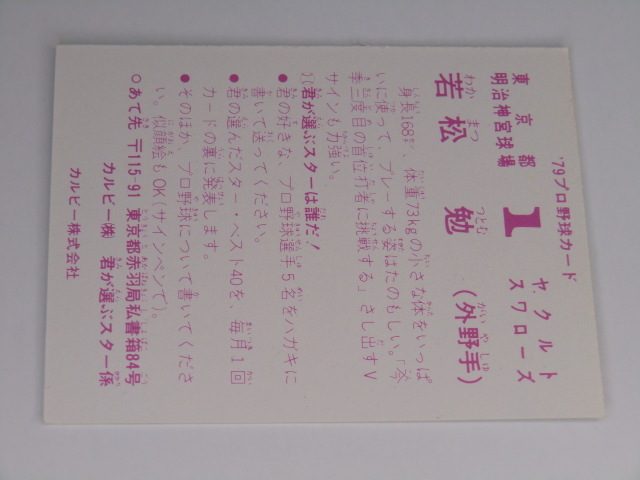 '79プロ野球カード
東京都 明治神宮球場 1 ヤクルト スワローズ
若松 勉 (外野手)
わか まつ つとむ がいやしゅ
身長168㌢、体重73kgの小さな体をいっぱ
いに使って、プレーする姿はたのもしい。「今
季三度目の首位打者に挑戦する」さし出すV
サインも力強い。
君が選ぶスターは誰だ!
●君の好きな、プロ野球選手5名をハガキに
書いて送ってください。
●君の選んだスター・ベスト40を、毎月1回
カードの裏に発表します。
●そのほか、プロ野球について書いてくださ
い。似顔絵もOK(サインペンで)。
○あて先 〒115-91 東京都赤羽局私書箱84号
カルビー(株) 君が選ぶスター係
カルビー株式会社